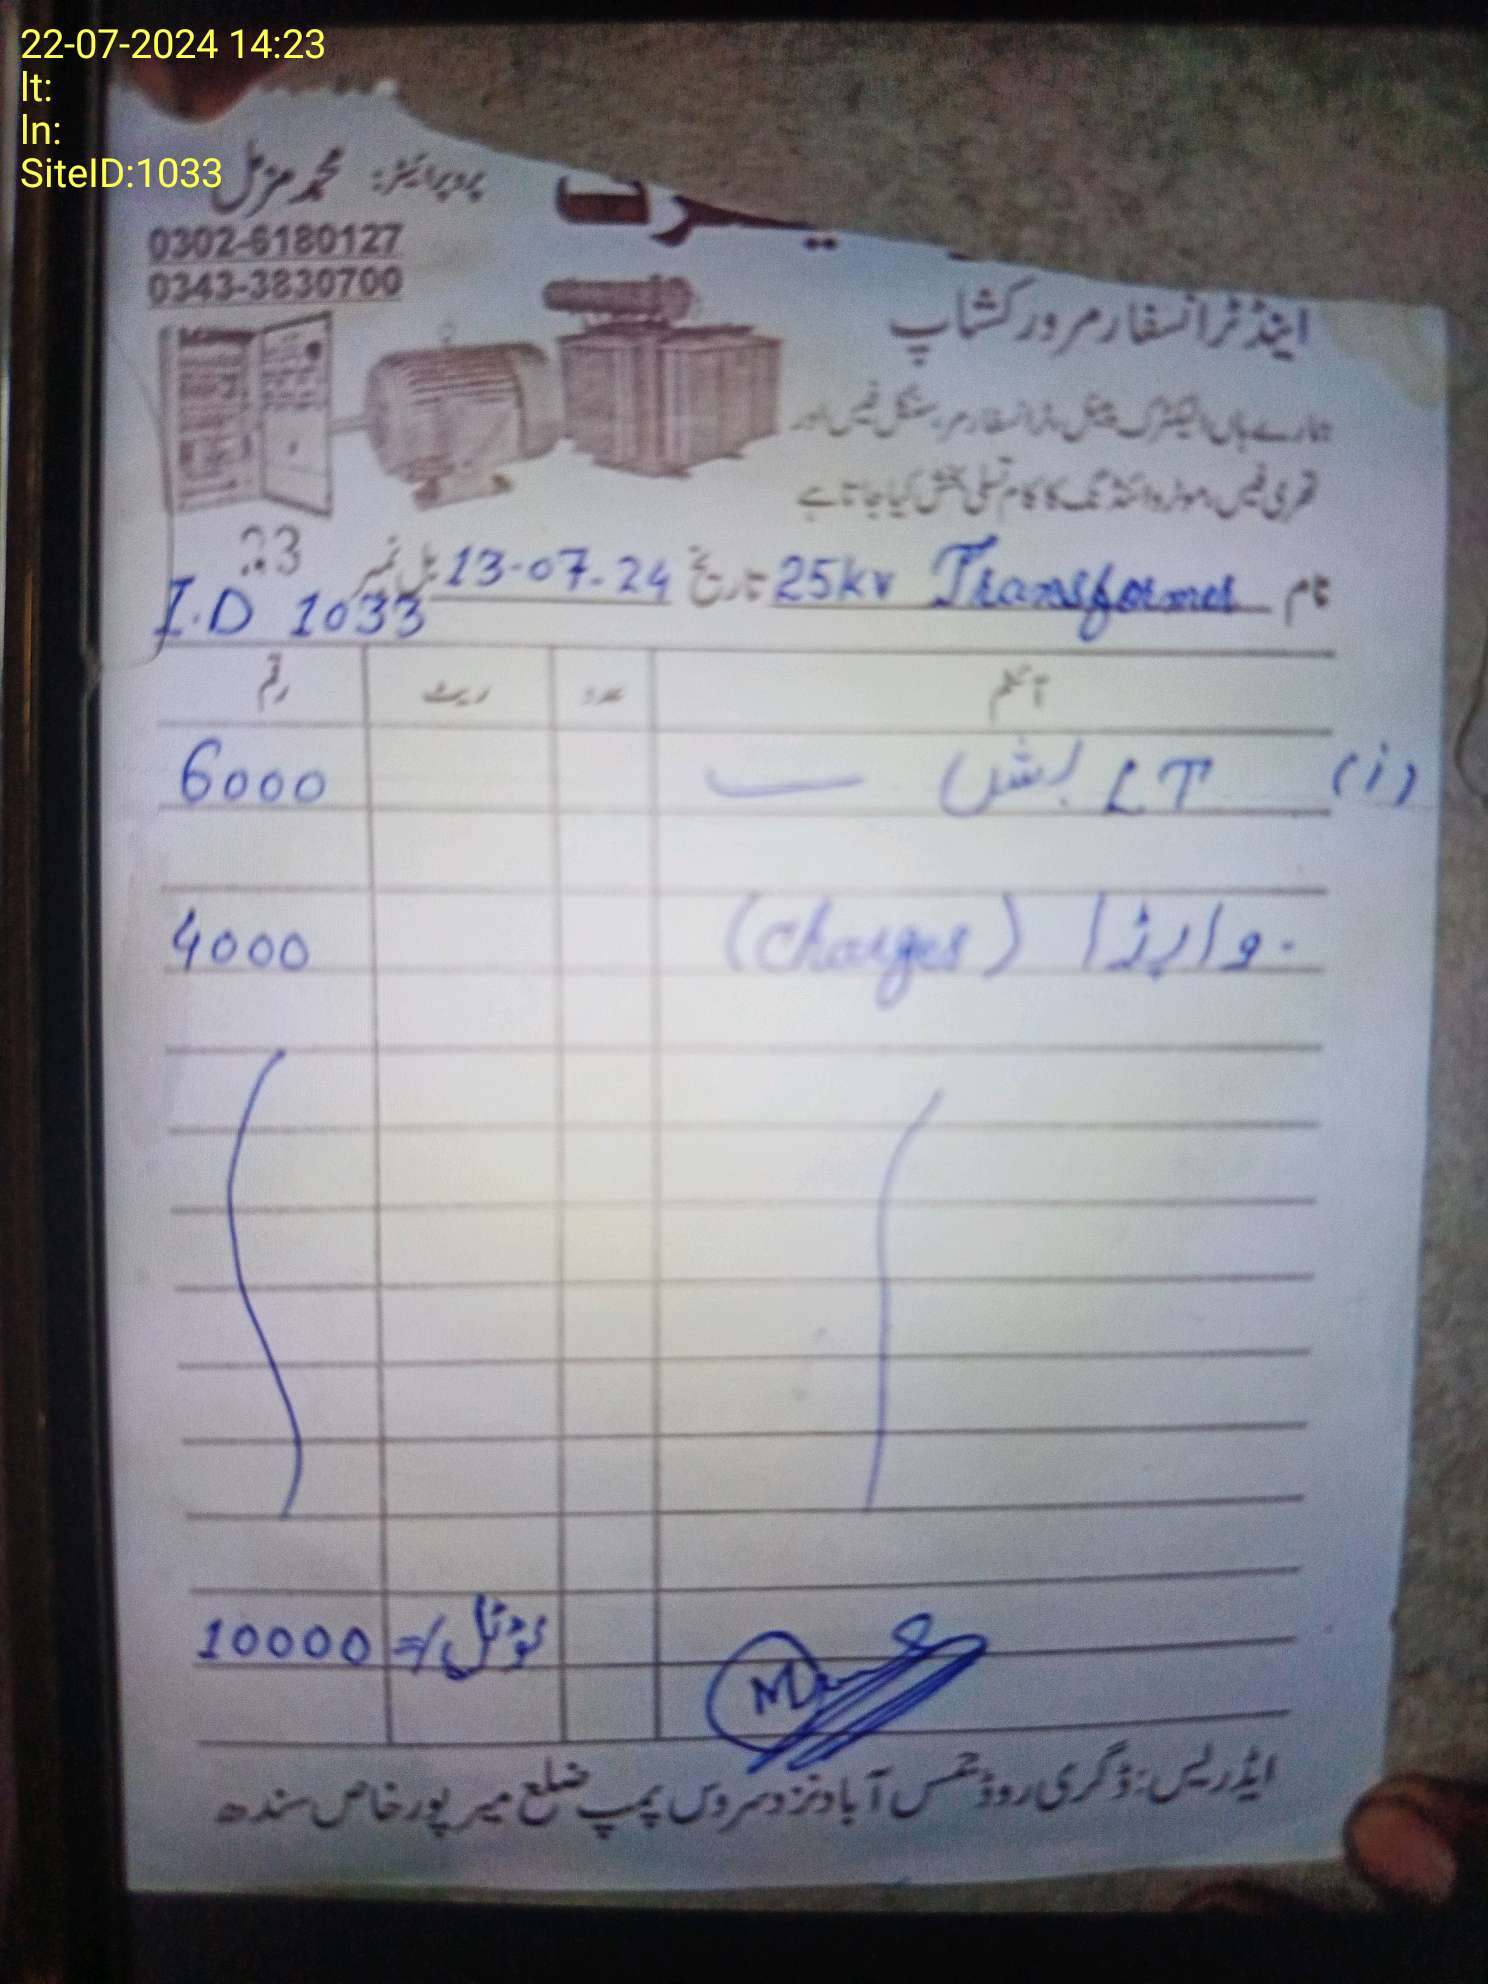 22-07-2024 14:23
lt:
ln:
SiteID:1033
پروپرائیٹر: محمد مزمل
0302-6180127
0343-3830700
اینڈ ٹرانسفارمر ورکشاپ
ہمارے ہاں الیکٹرک پینل، ٹرانسفارمر، سنگل فیس اور
تھری فیس، موٹر وائنڈنگ کا کام تسلی بخش کیا جاتا ہے
نام 25kv Transformer تاریخ 13-07-24 بل نمبر 23
I.D 1033
آئٹم عدد ریٹ رقم
(i) LT بش 6000
وابڈا (charges) 4000
ٹوٹل =/ 10000
ایڈریس: ڈگری روڈ شمس آباد نزد سروس پمپ ضلع میر پور خاص سندھ